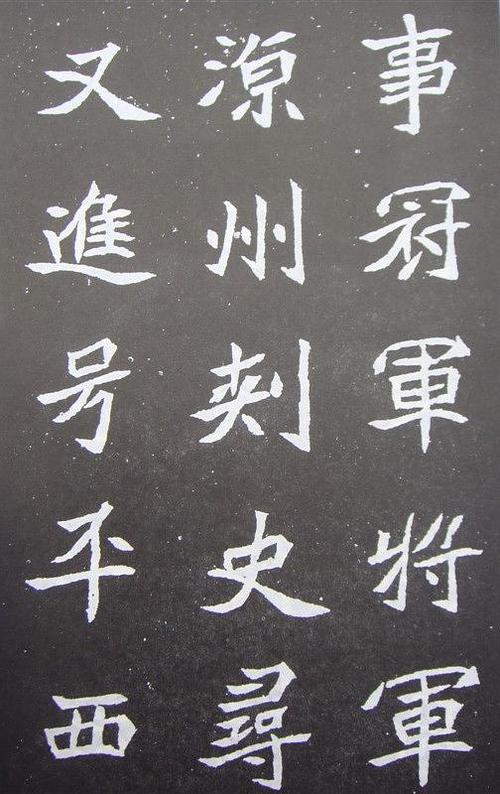 事冠軍將軍
涼州刺史尋
又進号平西